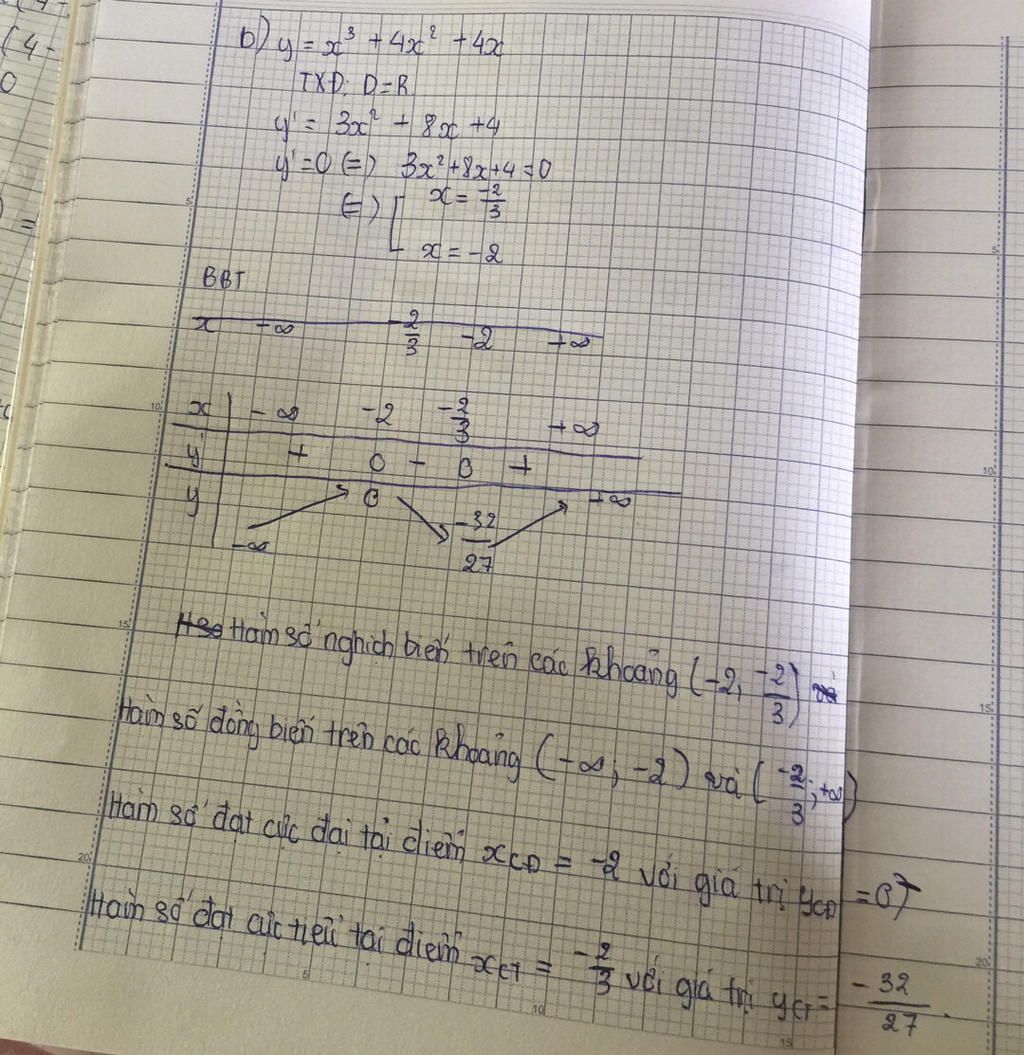 b) y = x³ + 4x² + 4x
TXĐ: D=R
y' = 3x² + 8x + 4
y' = 0 (=) 3x² + 8x + 4 = 0
(=) [ x = -2/3
x = -2
BBT
x -∞ -2/3 -2 +∞
x -∞ -2 -2/3 +∞
y' + 0 - 0 +
y -∞ 0 -32/27 +∞
Hàm số nghịch biến trên các khoảng (-2; -2/3)
Hàm số đồng biến trên các khoảng (-∞; -2) và (-2/3; +∞)
Hàm số đạt cực đại tại điểm xCĐ = -2 với giá trị yCĐ = 0
Hàm số đạt cực tiểu tại điểm xCT = -2/3 với giá trị yCT = -32/27.